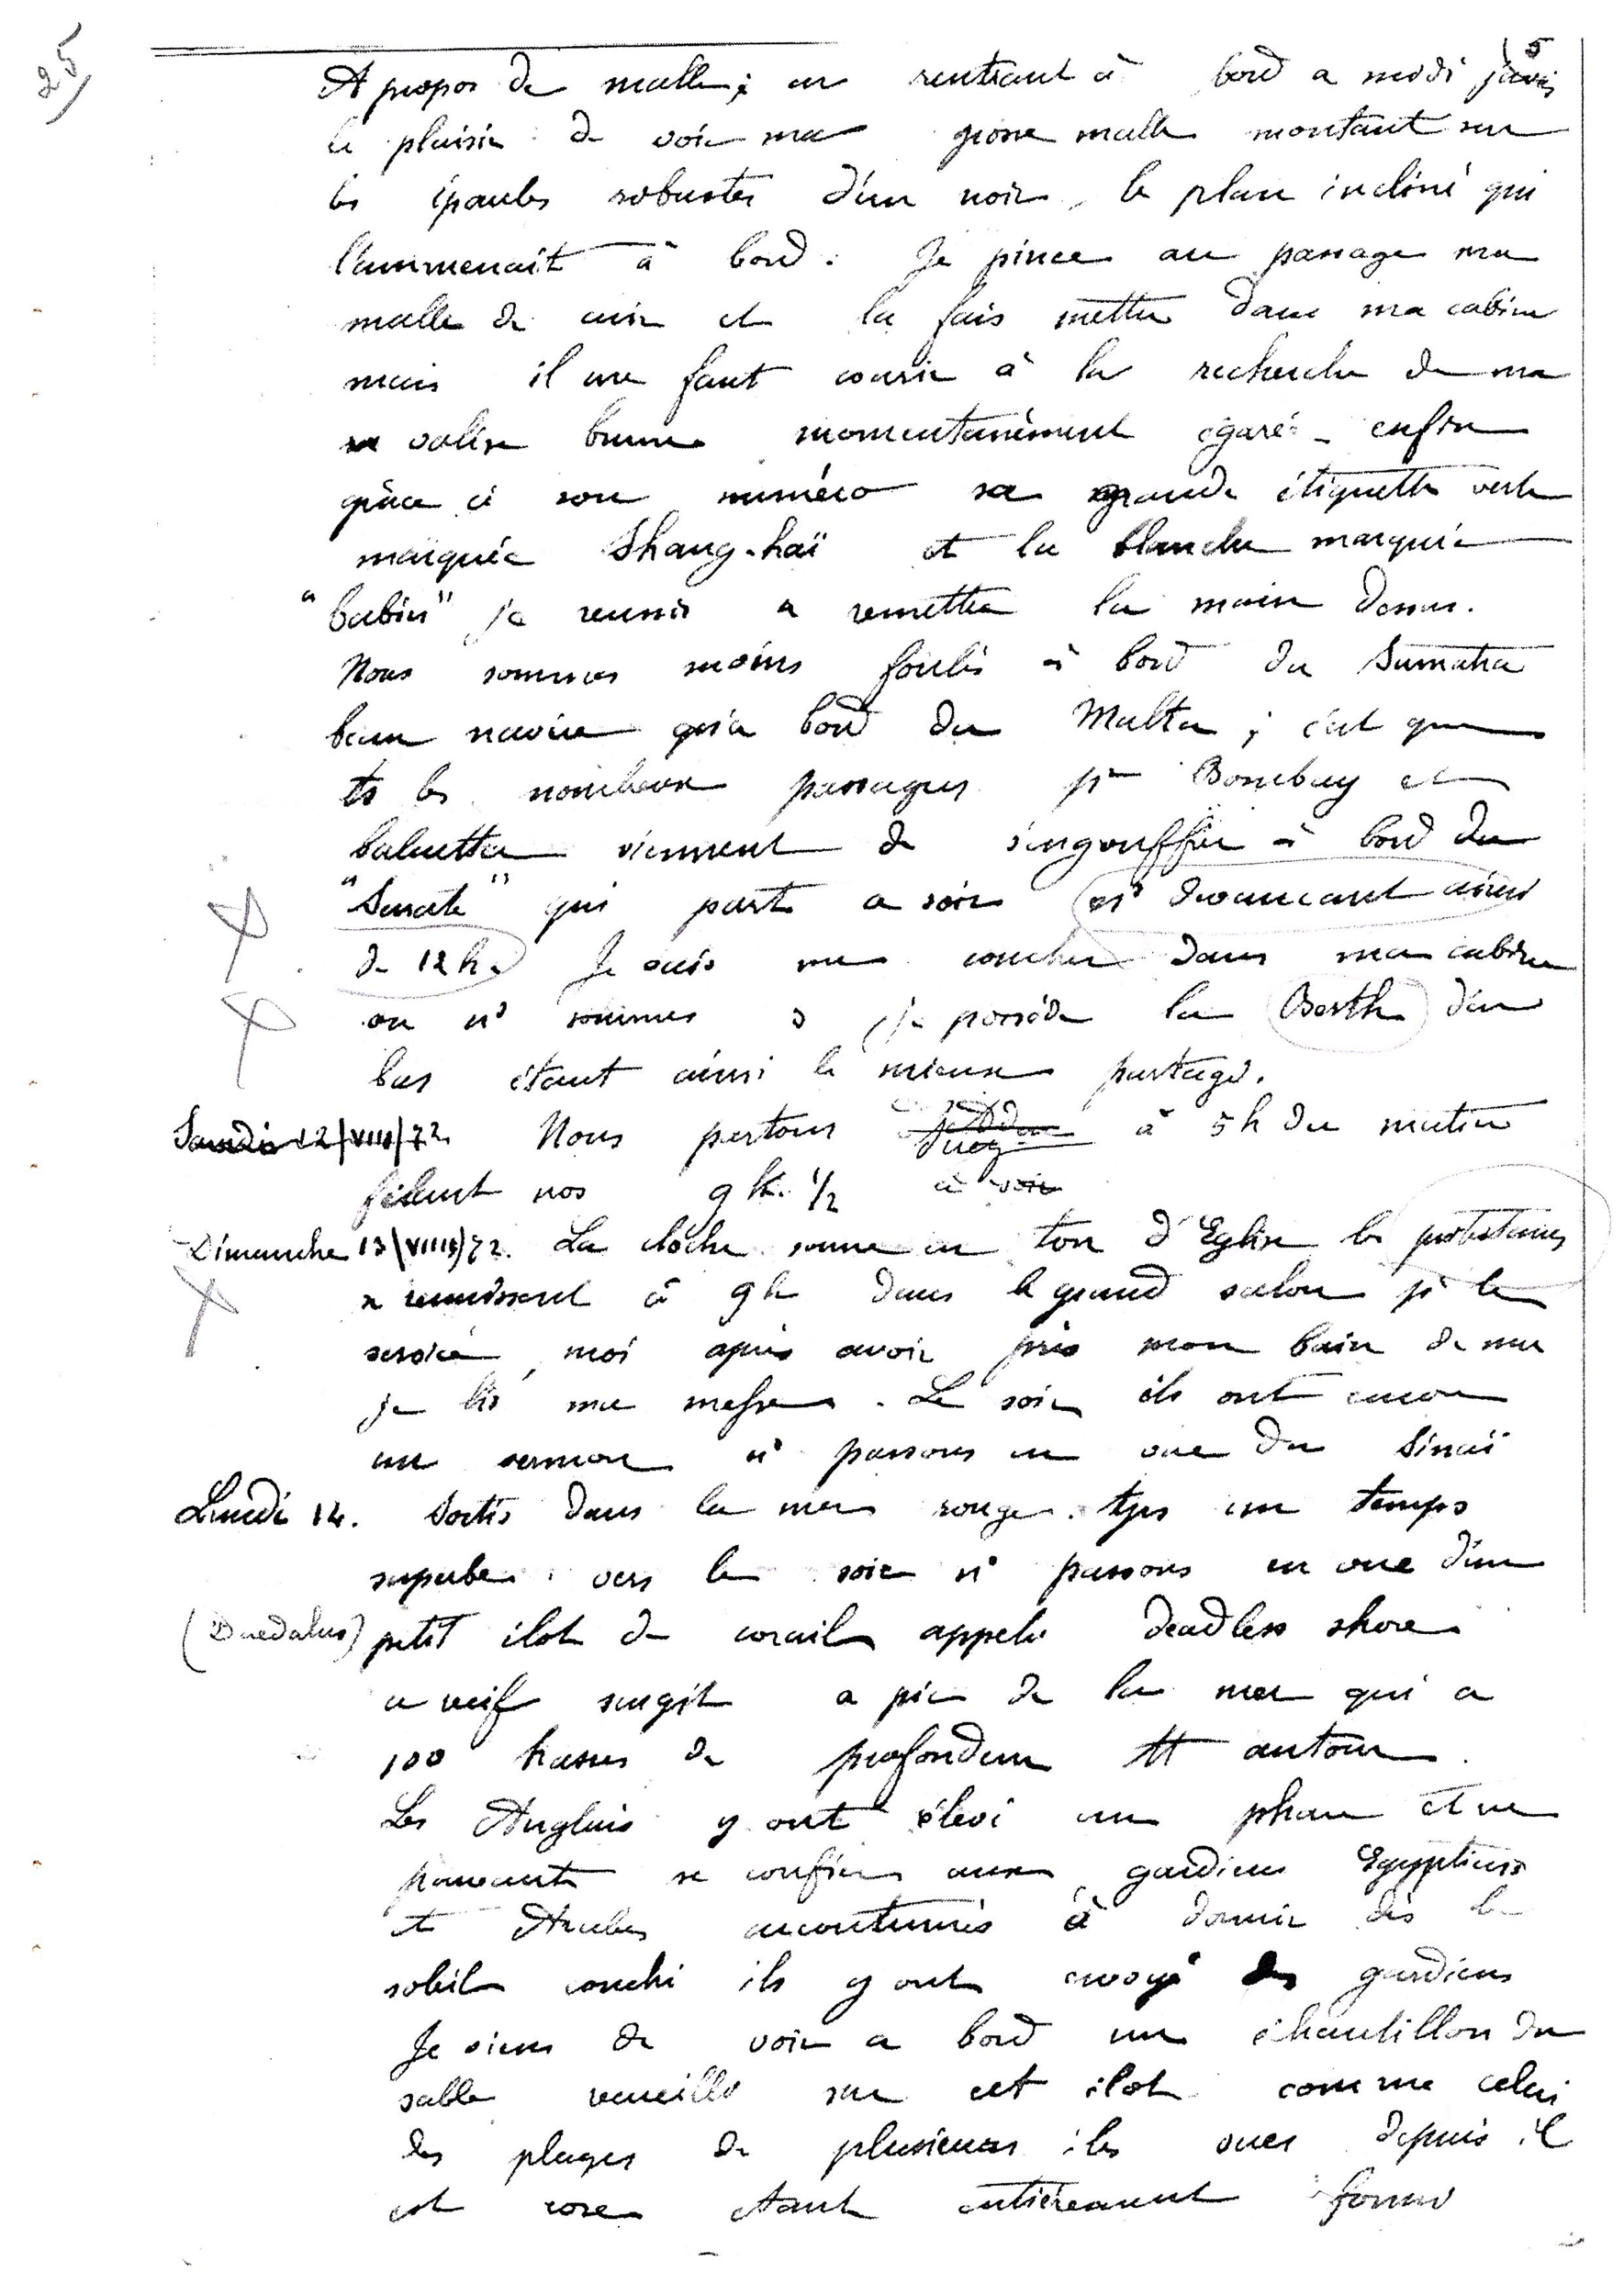 25
5
A propos de malle ; en rentrant à bord a midi j'avais
le plaisir de voir ma grosse malle montant sur
les épaules robustes d'un noir, le plan incliné qui
l'ammenait à bord. Je pince au passage ma
malle de cuir et la fais mettre dans ma cabine
mais il me faut courir à la recherche de ma
valise brune momentanément égaré - enfin
grâce à son numéro sa grande étiquette verte
marquée Shang-haï et la blanche marquée
"Cabin" je reussis a remettre la main dessus.
Nous sommes moins foulés à bord du Sumatra
beau navire qu'a bord du Malta ; c'est que
ts les nombreux passagers pr Bombay et
Calcutta viennent de s'engouffrer à bord du
"Surate" qui part ce soir ns devancant ainsi
de 12 h. Je vais me coucher dans ma cabine
ou ns sommes 3 je possède la Berth d'en
bas étant ainsi le mieux partagé.
Samedi 12/VIII/72. Nous partons Suez à 5 h du matin
filant nos 9 k. 1/2 a voir
Dimanche 13/VIII/72. La cloche sonne en ton d'Eglise les protestants
se reunissent à 9 h dans le grand salon pr le
service, moi après avoir pris mon bain de mer
je lis ma messe. Le soir ils ont encore
un sermon ns passons en vue du Sinaï
Lundi 14. Sortis dans la mer rouge. tjs un temps
superbe. vers le soir ns passons en vue d'un
(Daedalus) petit ilot de corail appelé deadless shore
ce recif surgit a pic de la mer qui a
100 brasses de profondeur tt autour.
Les Anglais y ont élevé un phare et ne
pouvant se confier aux gardiens Egyptiens
et Arabes accoutumés à dormir dès le
soleil couché ils y ont envoyé des gardiens
Je viens de voir a bord un échantillon du
sable recueilli sur cet ilot comme celui
des plages de plusieurs iles vues depuis il
est rose etant entièrement formé